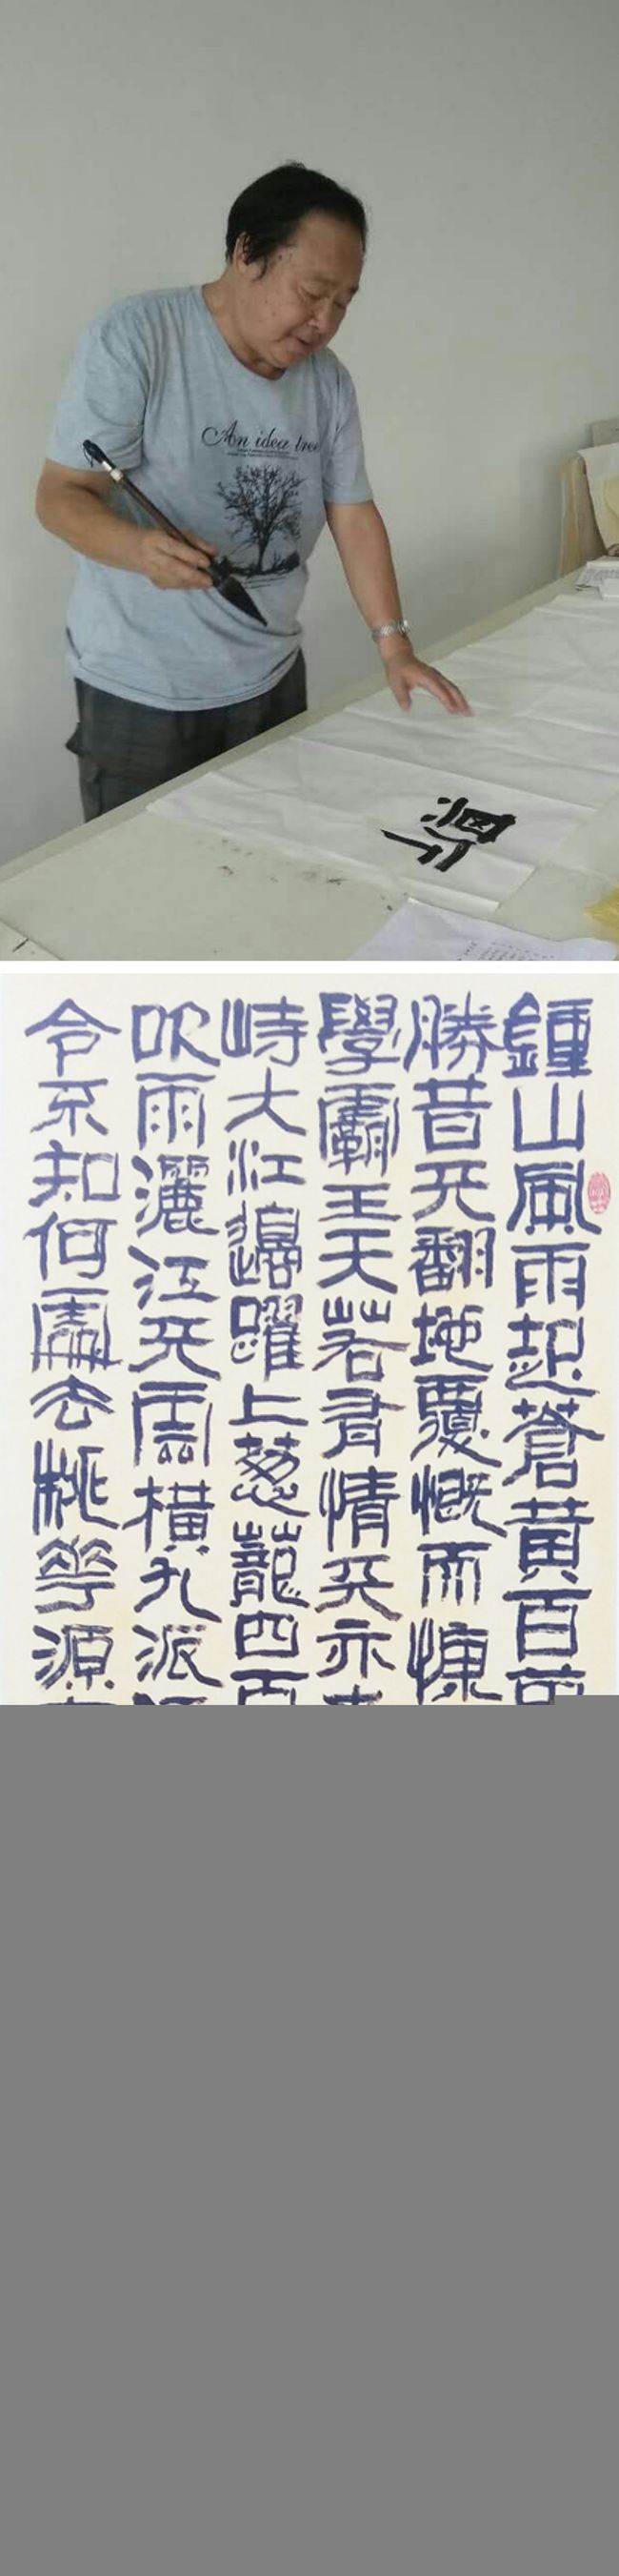 An idea tree
鍾山風雨起蒼黃百
勝昔天翻地覆慨而慷
學霸王天若有情天亦
峙大江邊躍上葱蘢四百
吹雨灑江天雲橫九派
令不知何處去桃華源